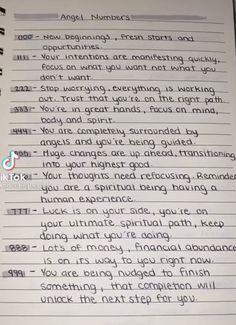 Angel Numbers
000 - New beginnings, fresh starts and
oppurtunities.
111 - Your intentions are manifesting quickly,
focus on what you want not what you
don't want.
222 - Stop worrying, everything is working
out. Trust that you're on the right path.
333 - You're in great hands, focus on mind,
body and spirit.
444 - You are completely surrounded by
angels and you're being guided.
- Huge changes are up ahead, transitioning
into your highest good.
- Your thoughts need refocusing. Reminder
you are a spiritual being having a
human experience.
777 - Luck is on your side, you're on
your ultimate spiritual path, keep
doing what you're doing.
888 - Lots of money, financial abundance
is on its way to you right now.
999 - You are being nudged to finish
something, that completion will
unlock the next step for you.
TikTok